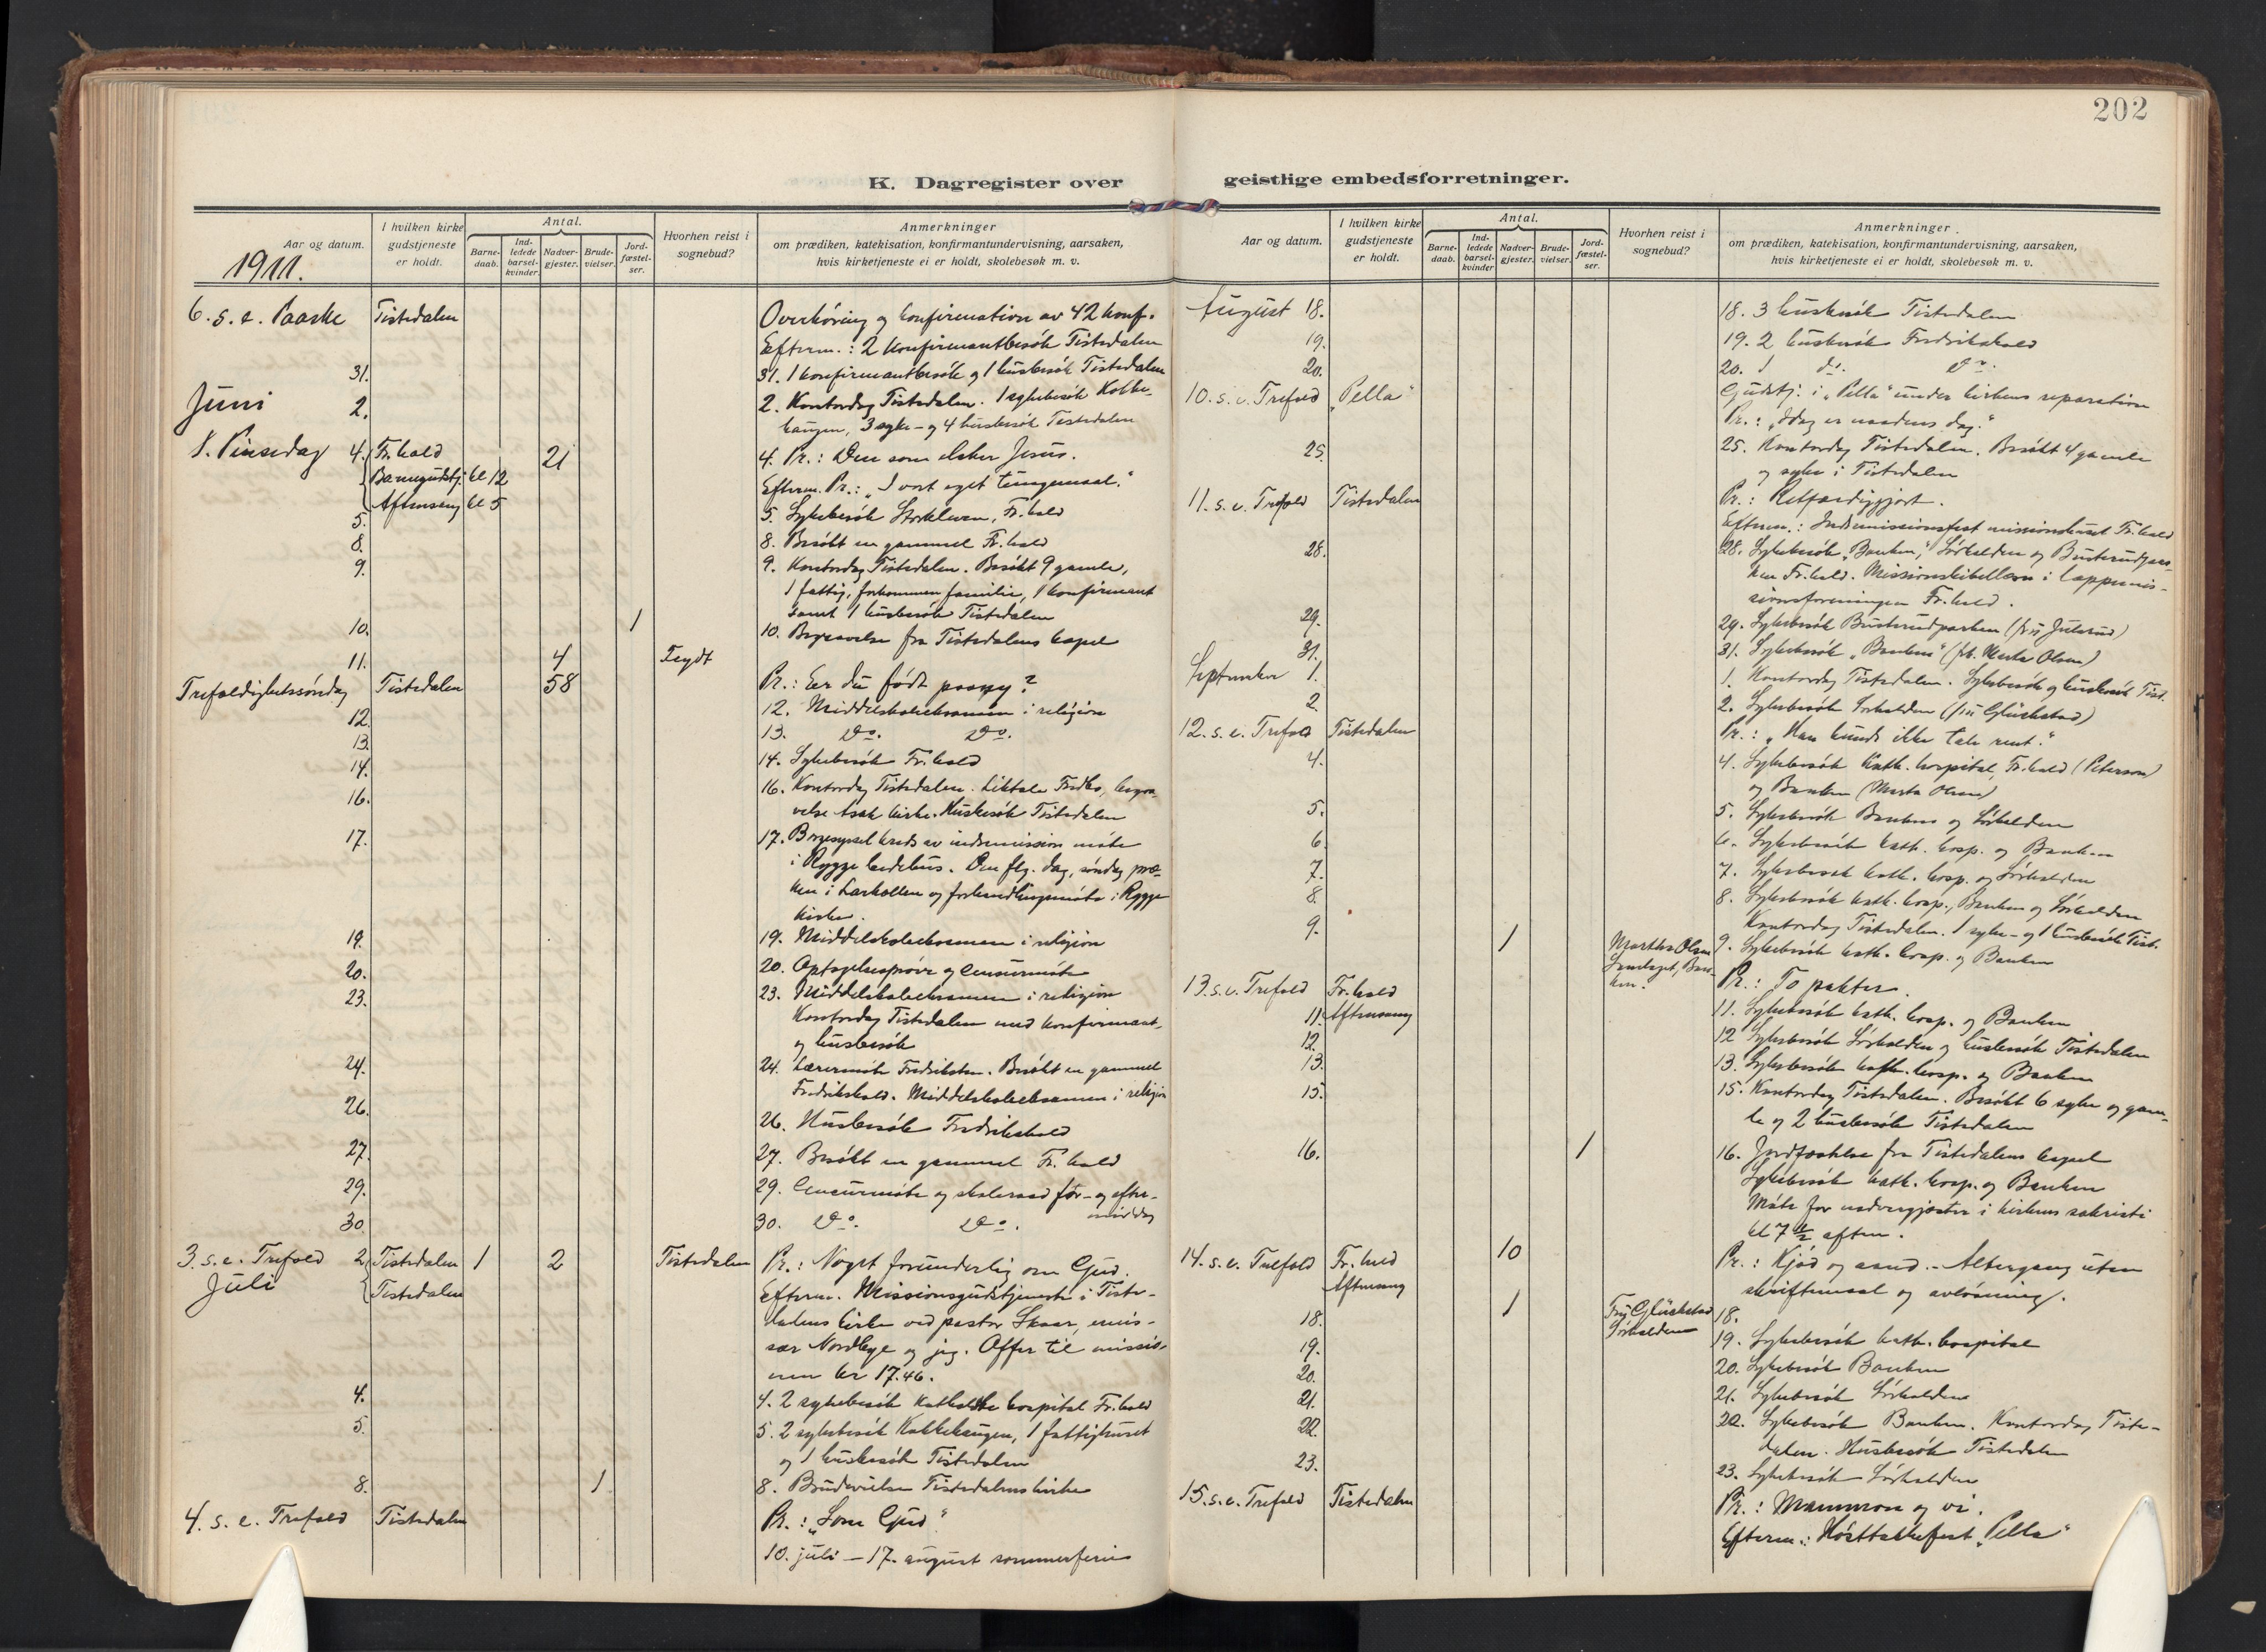 202
K. Dagregister over geistlige embedsforretninger.
Aar og datum.
I hvilken kirke gudstjeneste er holdt.
Antal.
Barne-daab.
Ind-ledede barsel-kvinder
Nadver-gjester.
Brude-vielser.
Jord-fæstel-ser.
Hvorhen reist i sognebud?
Anmerkninger
om prædiken, katekisation, konfirmantundervisning, aarsaken,
hvis kirketjeneste ei er holdt, skolebesøk m. v.
1911.
6. s. e. Paaske Tistedalen Overhöring og konfirmation av 42 konf.
Efterm.: 2 konfirmantbesök Tistedalen
31. 31. 1 konfirmantbesök og 1 husbesök Tistedalen
Juni 2. 2. Kontordag Tistedalen. 1 sykebesök Kokke-
haugen, 3 syke- og 4 husbesök Tistedalen
1. Pinsedag 4. Fr.hald 21 4. Pr.: Den som elsker Jesus.
Barnegudstj. kl 12
Aftensang kl 5 Efterm. Pr.: "I vort eget tungemaal."
5. 5. Sykebesök Fr.hald
8. 8. Besökt en gammel Fr.hald
9. 9. Kontordag Tistedalen. Besökt 9 gamle,
1 fattig, forkommen familie, 1 konfirmant
samt 1 husbesök Tistedalen
10. 1 10. Begravelse fra Tistedalens kapel
11. 4
Trefoldighetssöndag Tistedalen 58 Pr.: Er du födt paany?
12. 12. Middelskoleeksamen i religion
13. 13. do. do.
14. 14. Sykebesök Fr.hald
16. 16. Kontordag Tistedalen. Liktale Fredho, begra-
velse Asak kirke. Husbesök Tistedalen
17. 17. Borgesyssel kreds av indremission möte
i Rygge bedehus. Den flg. dag, söndag præ-
ken i Larkollen og forhandlingsmöte i Rygge
kirke.
19. 19. Middelskoleeksamen i religion
20. 20. Optagelsespröve og censurmöte
23. 23. Middelskoleeksamen i religion
Kontordag Tistedalen med konfirmant-
og husbesök
24. 24. Lærermöte Fredriksten. Besökt en gammel
Fredrikshald. Middelskoleeksamen i religion
26. 26. Husbesök Fredrikshald
27. 27. Besökt en gammel Fr.hald
29. 29. Censurmöte og skoleraad for- og efter-
middag
30. 30. do. do.
3. s. e. Trefold 2. Tistedalen 1 2 Tistedalen Pr.: Noget forunderlig om Gud.
Juli Tistedalen Efterm. Missionsgudstjeneste i Tiste-
dalens kirke ved pastor Skaar, emis-
sær Nordbye og jeg. Offer til missio-
nen kr 17.46.
4. 4. 2 sykebesök katholske hospital Fr.hald
5. 5. 2 sykebesök Kokkehaugen, 1 fattighuset
og 1 husbesök Tistedalen
8. 1 8. Brudevielse Tistedalens kirke
4. s. e. Trefold Tistedalen Pr.: "Som Gud"
10. juli – 17. august sommerferie
Aar og datum.
I hvilken kirke gudstjeneste er holdt.
Antal.
Barne-daab.
Ind-ledede barsel-kvinder
Nadver-gjester.
Brude-vielser.
Jord-fæstel-ser.
Hvorhen reist i sognebud?
Anmerkninger
om prædiken, katekisation, konfirmantundervisning, aarsaken,
hvis kirketjeneste ei er holdt, skolebesøk m. v.
August 18. 18. 3 husbesök Tistedalen
19. 19. 2 husbesök Fredrikshald
20. 20. 1 do. do.
10. s. e. Trefold "Pella" Gudstj. i "Pella" under kirkens reparation
Pr.: "Idag er naadens dag."
25. 25. Kontordag Tistedalen. Besökt 4 gamle
og syke i Tistedalen
11. s. e. Trefold Tistedalen Pr.: Retfærdiggjort.
Efterm.: Indremissionsfest missionshuset Fr.hald
28. 28. Sykebesök "Banken," Sörhalden og Busterudpar-
ken Fr.hald. Missionsbibellæsn i lappemis-
sionsforeningen Fr.hald.
29. 29. Sykebesök Busterudparken (fru Julsrud)
31. 31. Sykebesök "Banken" (frk. Marta Olsen)
September 1. 1. Kontordag Tistedalen. Sykebesök og husbesök Tist.
2. 2. Sykebesök Sörhalden (fru Glückstad)
12. s. e. Trefold Tistedalen Pr.: "Han kunde ikke tale rent."
4. 4. Sykebesök kath. hospital, Fr.hald (Peterson)
og Banken (Marta Olsen)
5. 5. Sykebesök Banken og Sörhalden
6. 6. Sykebesök kath. hosp. og Banken
7. 7. Sykebesök kath. hosp. og Sörhalden
8. 8. Sykebesök kath. hosp., Banken og Sörhalden
Kontordag Tistedalen. 1 syke- og 1 husbesök Tist.
9. 1 Martha Olsen 9. Sykebesök kath. hosp. og Banken
13. s. e. Trefold Fr.hald Pr.: To pakter.
Aftensang
11. 11. Sykebesök kath. hosp. og Banken
12. 12 Sykebesök Sörhalden og husbesök Tistedalen
13. 13. Sykebesök kath. hosp. og Banken
15. 15. Kontordag Tistedalen. Besökt 6 syke og gam-
le og 2 husbesök Tistedalen
16. 1 16. Jordfæstelse fra Tistedalens kapel
Sykebesök kath. hosp. og Banken
Möte for nadvergjæster i kirkens sakristi
kl 7 1/2 aften.
14. s. e. Trefold Fr.hald 10 Pr.: Kjöd og aand. – Altergang uten
Aftensang skriftemaal og avlösning.
18. 1 Fru Glückstad Sörhalden 18.
19. 19. Sykebesök kath. hospital
20. 20. Sykebesök Banken
21. 21. Sykebesök Sörhalden
22. 22. Sykebesök Banken. Kontordag Tiste-
dalen. Husbesök Tistedalen
23. 23. Sykebesök Sörhalden
15. s. e. Trefold Tistedalen Pr.: Mammon og vi.
Efterm.: Hösttakkefest "Pella"